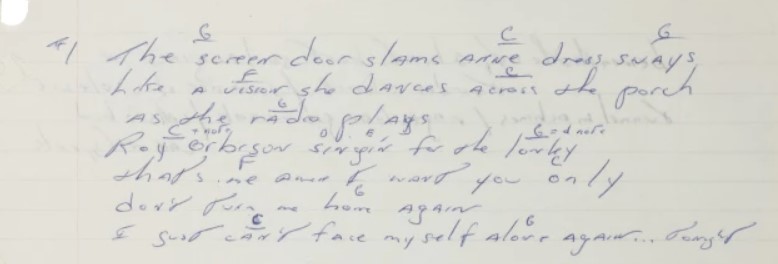 G C G
#1 The screen door slams Anne dress sways
F C
Like a vision she dances across the porch
G
As the radio plays
C + note D E D G = d note
Roy Orbison singin' for the lonely
F C
that's me Anne I want you only
G
don't turn me home again
C G
I just can't face myself alone again... Tonight